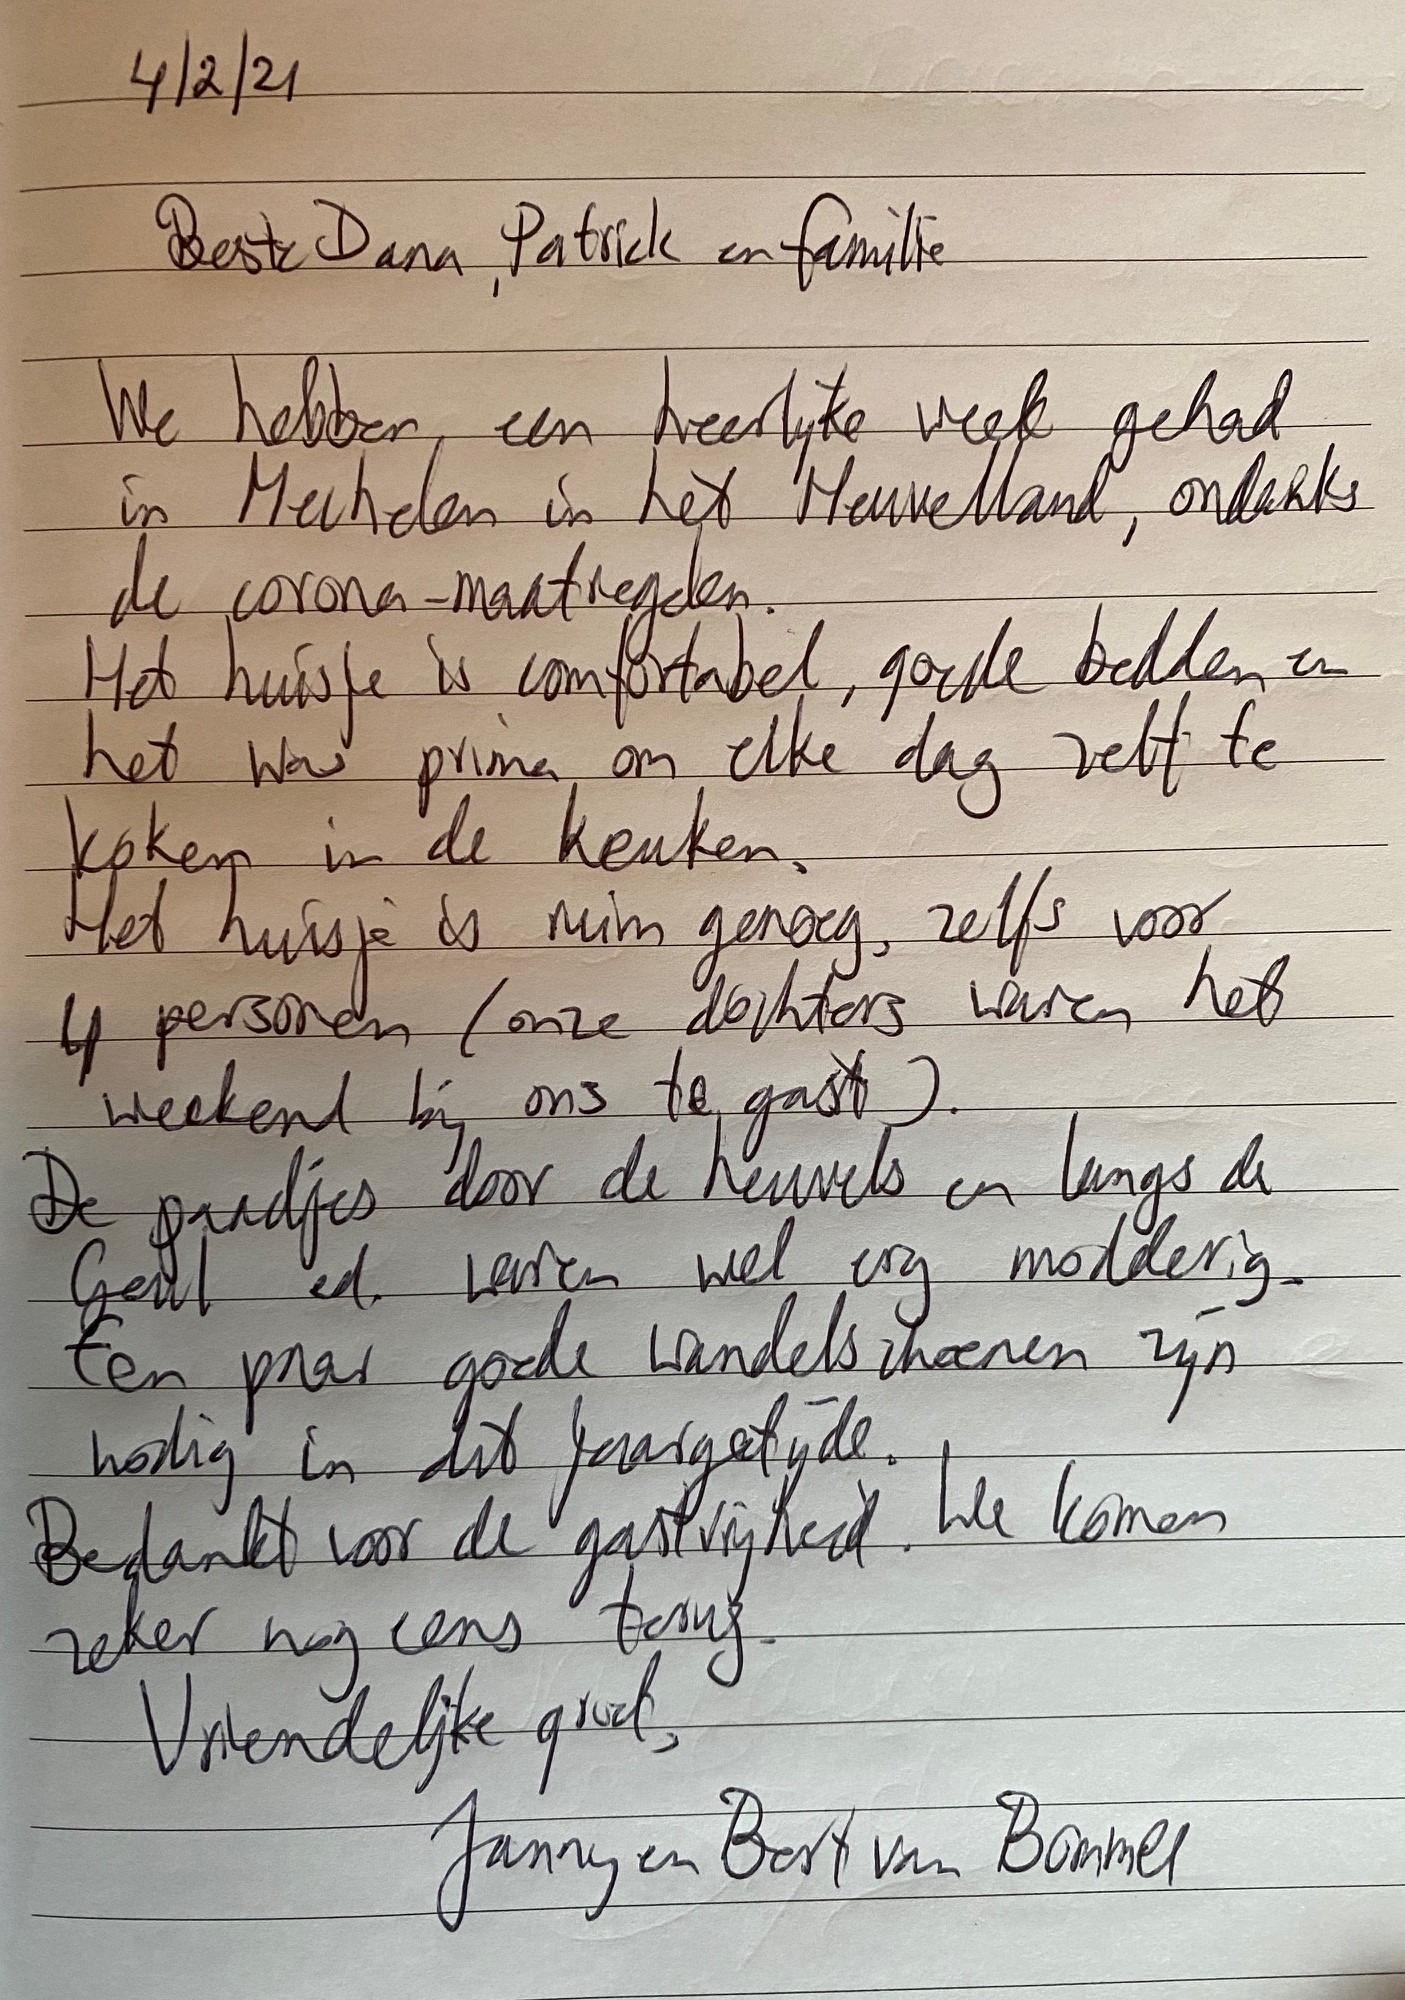 4/2/21
Beste Dana, Patrick en familie
We hebben een heerlijke week gehad
in Mechelen in het Heuvelland, ondanks
de corona-maatregelen.
Het huisje is comfortabel, goede bedden en
het was prima om elke dag zelf te
koken in de keuken.
Het huisje is ruim genoeg, zelfs voor
4 personen (onze dochters waren het
weekend bij ons te gast).
De paadjes door de heuvels en langs de
Geul ed. waren wel erg modderig.
Een paar goede wandelschoenen zijn
nodig in dit jaargetijde.
Bedankt voor de gastvrijheid. We komen
zeker nog eens terug.
Vriendelijke groet,
Janny en Bert van Bommel